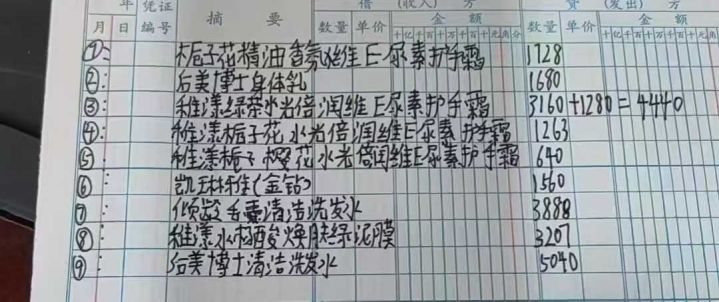 年 凭证 摘 要 借 (收入) 方 贷 (发出) 方
月 日 编号 数量 单价 金 额 数量 单价 金 额
十亿千百十万千百十元角分 十亿千百十万千百十元角分
①: 栀子花精油香氛维E尿素护手霜 1728
②: 后美博士身体乳 1680
③: 稚漾绿茶水光倍润维E尿素护手霜 3160+1280=4440
④: 稚漾栀子花水光倍润维E尿素护手霜 1263
⑤ 稚漾栀子樱花水光倍润维E尿素护手霜 640
⑥: 凯琳雅(金钻) 1560
⑦: 倾龄去屑清洁洗发水 3888
⑧: 稚漾水杨酸焕肤绿泥膜 3207
⑨: 后美博士清洁洗发水 5040